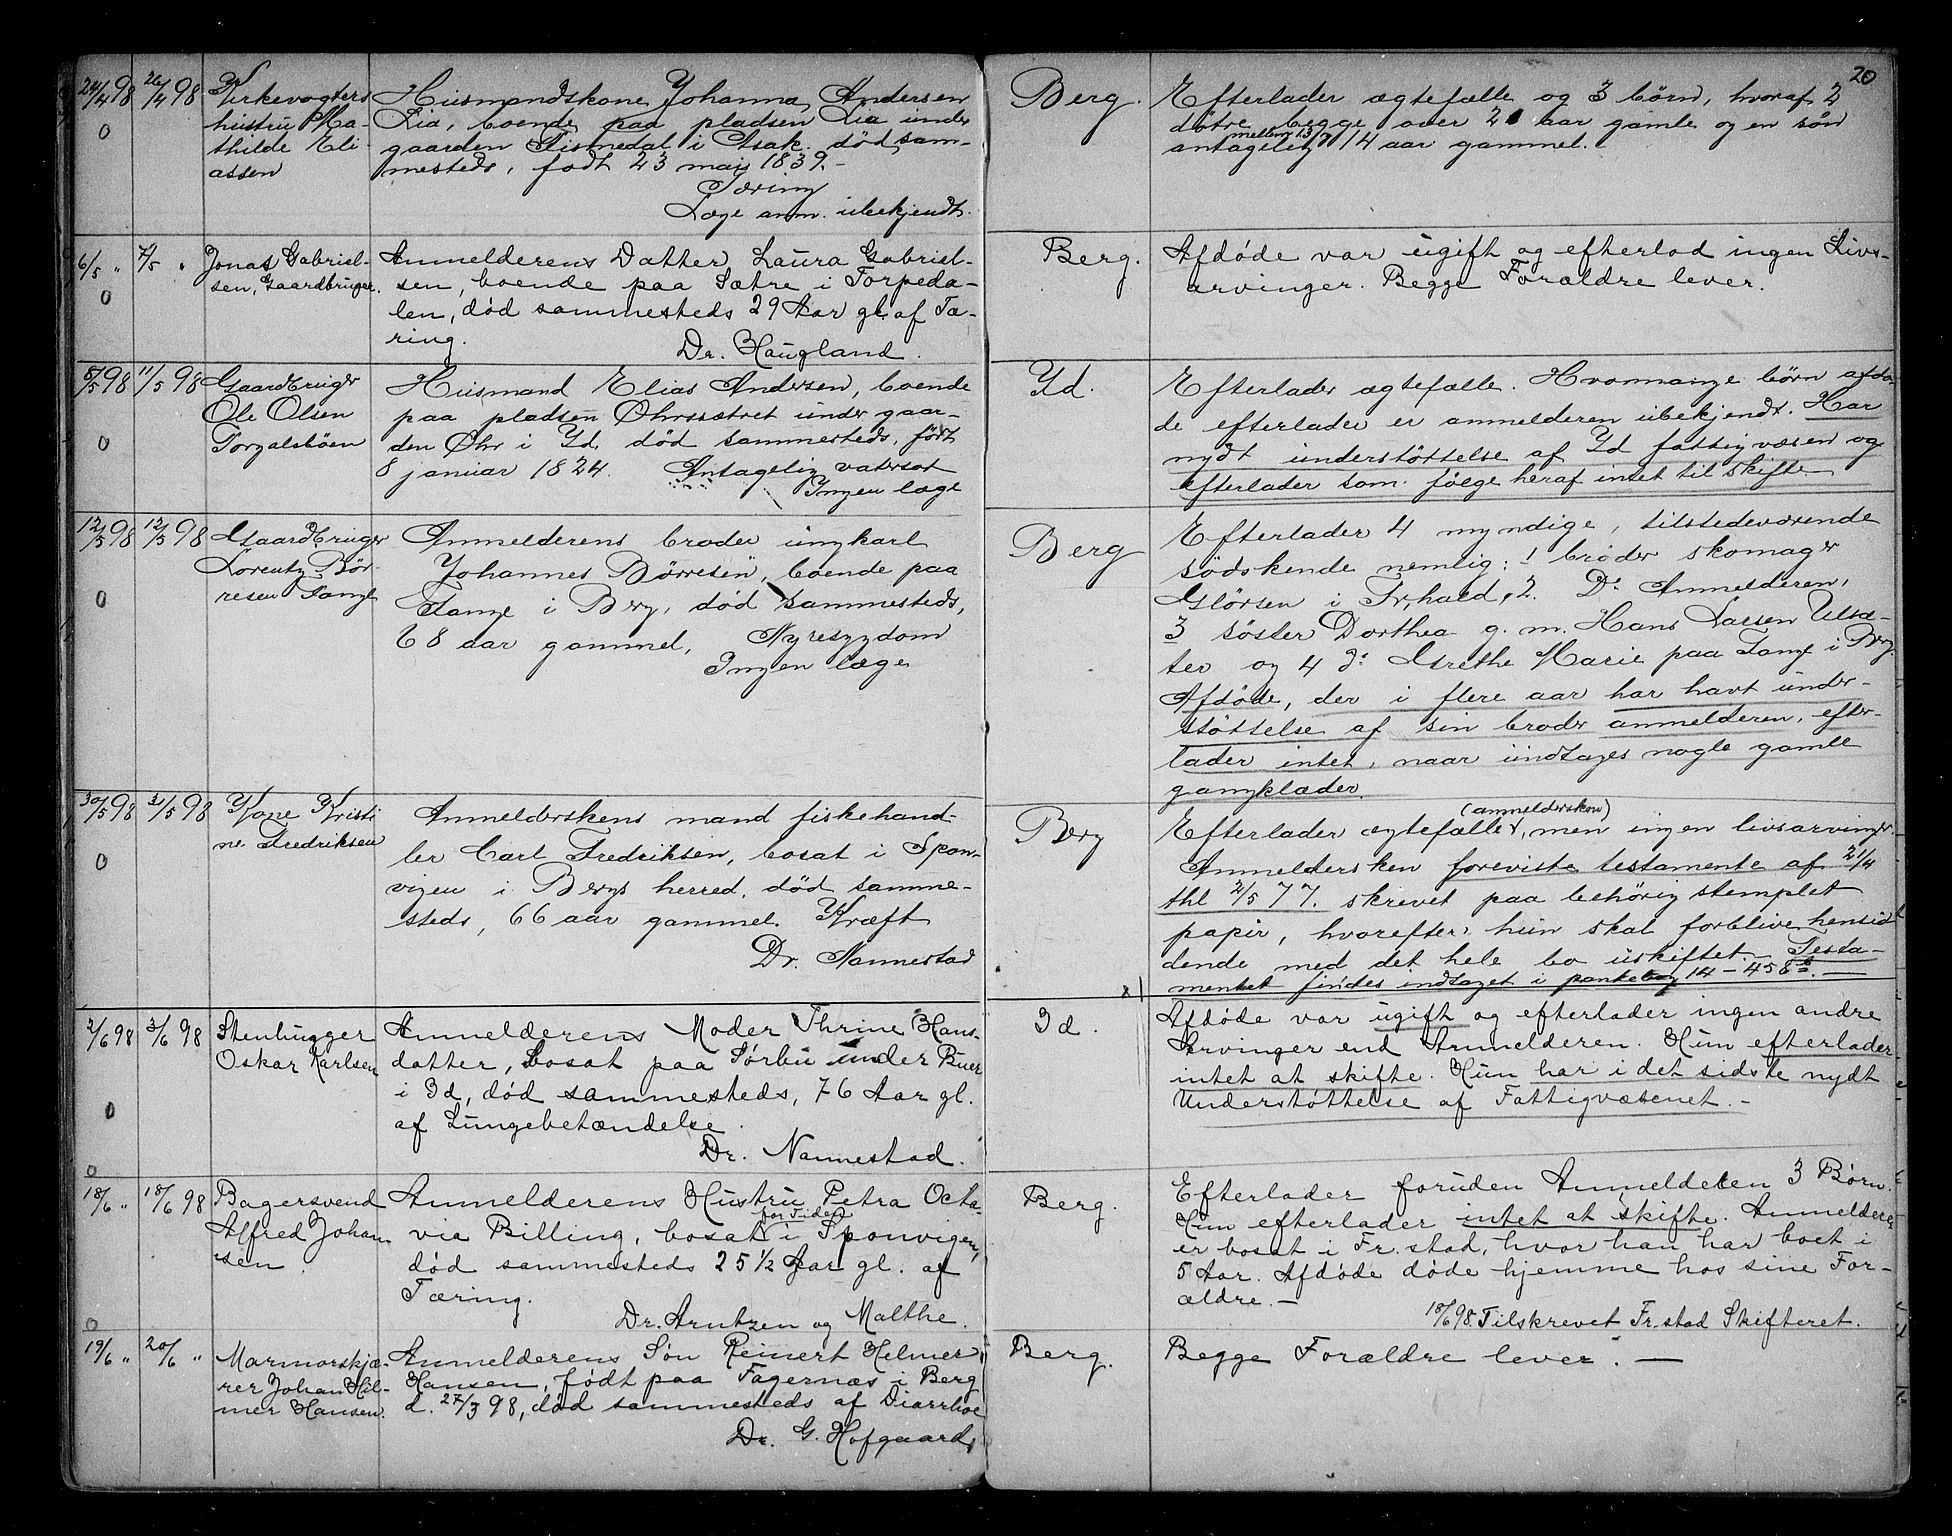 20
24/4 98
26/4 98
Kirkevogters
hustru Ma-
thilde Eli-
assen
Husmandskone Johanna Andersen
Lia, boende paa pladsen Lia under
gaarden i Asak. død sam-
mesteds, født 23 mai 1839.-
Tæring
Læge anm. ubekjendt.
Berg.
Efterlader ægtefælle og 3 børn, hvoraf 2
døtre begge over 20 aar gamle og en søn
antagelig mellem 13 / 14 aar gammel.
0
6/5 "
7/5 "
Jonas Gabriel-
sen, Gaardbruger.
Anmelderens Datter Laura Gabriel-
sen, boende paa Sætre i Torpeda-
len, død sammesteds 29 Aar gl. af Tæ-
ring.
Dr. Haugland.
Berg.
Afdøde var ugift og efterlod ingen Livs-
arvinger. Begge Forældre lever.
0
8/5 98
11/5 98
Gaardbruger
Ole Olsen
Torgalsbøen
Husmand Elias Andersen, boende
paa pladsen Øhrssætret under gaar-
den Øhr i Yd, død sammesteds, født
8 januar 1824. Antagelig vatersot
Ingen læge
Yd.
Efterlader ægtefælle. Hvormange børn afdø-
de efterlader er anmelderen ubekjendt. Har
nydt understøttelse af Yd fattigvæsen og
efterlader som følge heraf intet til skifte.
0
12/5 98
12/5 98
Gaardbruger
Lorentz Bør-
resen Tange
Anmelderens broder ungkarl
Johannes Børresen, boende paa
Tange i Berg, død sammesteds,
68 aar gammel, Nyresygdom
Ingen læge
Berg
Efterlader 4 myndige, tilstedeværende
sødskende nemlig: 1 broder skomager
i Fr.hald, 2. Do Anmelderen,
3 søster Dorthea g. m. Hans Larsen Ulsæ-
ter og 4 do Grethe Marie paa Tange i Berg.
Afdøde, der i flere aar har havt under-
støttelse af sin broder anmelderen, efter-
lader intet, naar undtages nogle gamle
gangklæder.
0
30/5 98
31/5 98
Kone Kristi-
ne Fredriksen
Anmelderskens mand fiskehand-
ler Carl Fredriksen, bosat i Spon-
vigen i Bergs herred, død samme-
steds, 66 aar gammel. Kræft
Dr. Nannestad
Berg
(anmeldersken)
Efterlader ægtefælle, men ingen livsarvinger.
Anmeldersken foreviste testamente af 21/4
thl 2/5 77. skrevet paa behørig stemplet
papir, hvorefter hun skal forblive hensid-
dende med det hele bo uskiftet. Testa-
mentet findes indtaget i pantebog 14 - 458 -
0
2/6 98
3/6 98
Stenhugger
Oskar Karlsen
Anmelderens Moder Thrine Hans-
datter, bosat paa Sørbu under Buer
i Id, død sammesteds, 76 Aar gl.
af Lungebetændelse.
Dr. Nannestad.
Id.
Afdøde var ugift og efterlader ingen andre
Arvinger end Anmelderen. Hun efterlader
intet at skifte. Hun har i det sidste nydt
Understøttelse af Fattigvæsenet.-
0
18/6 "
18/6 98
Bagersvend
Alfred Johan-
sen.
Anmelderens Hustru Petra Octa-
via Billing, bosat for Tiden i Sponvigen,
død sammesteds 25 1/2 Aar gl. af
Tæring.
Dr. Arntzen og Malthe.
Berg.
Efterlader foruden Anmelderen 3 Børn.
Hun efterlader intet at skifte. Anmelderen
er bosat i Fr.stad, hvor han har boet i
5 Aar. Afdøde døde hjemme hos sine For-
ældre.-
18/6 98. Tilskrevet Fr.stad Skifteret.
0
19/6 "
20/6 "
Marmorskjæ-
rer Johan Hil-
mer Hansen.
Anmelderens Søn Reinert Helmer
Hansen, født paa Fagernæs i Berg
d. 27/3 98, død sammesteds af Diarrhoe
Dr. G. Hofgaard,
Berg.
Begge Forældre lever.-
0